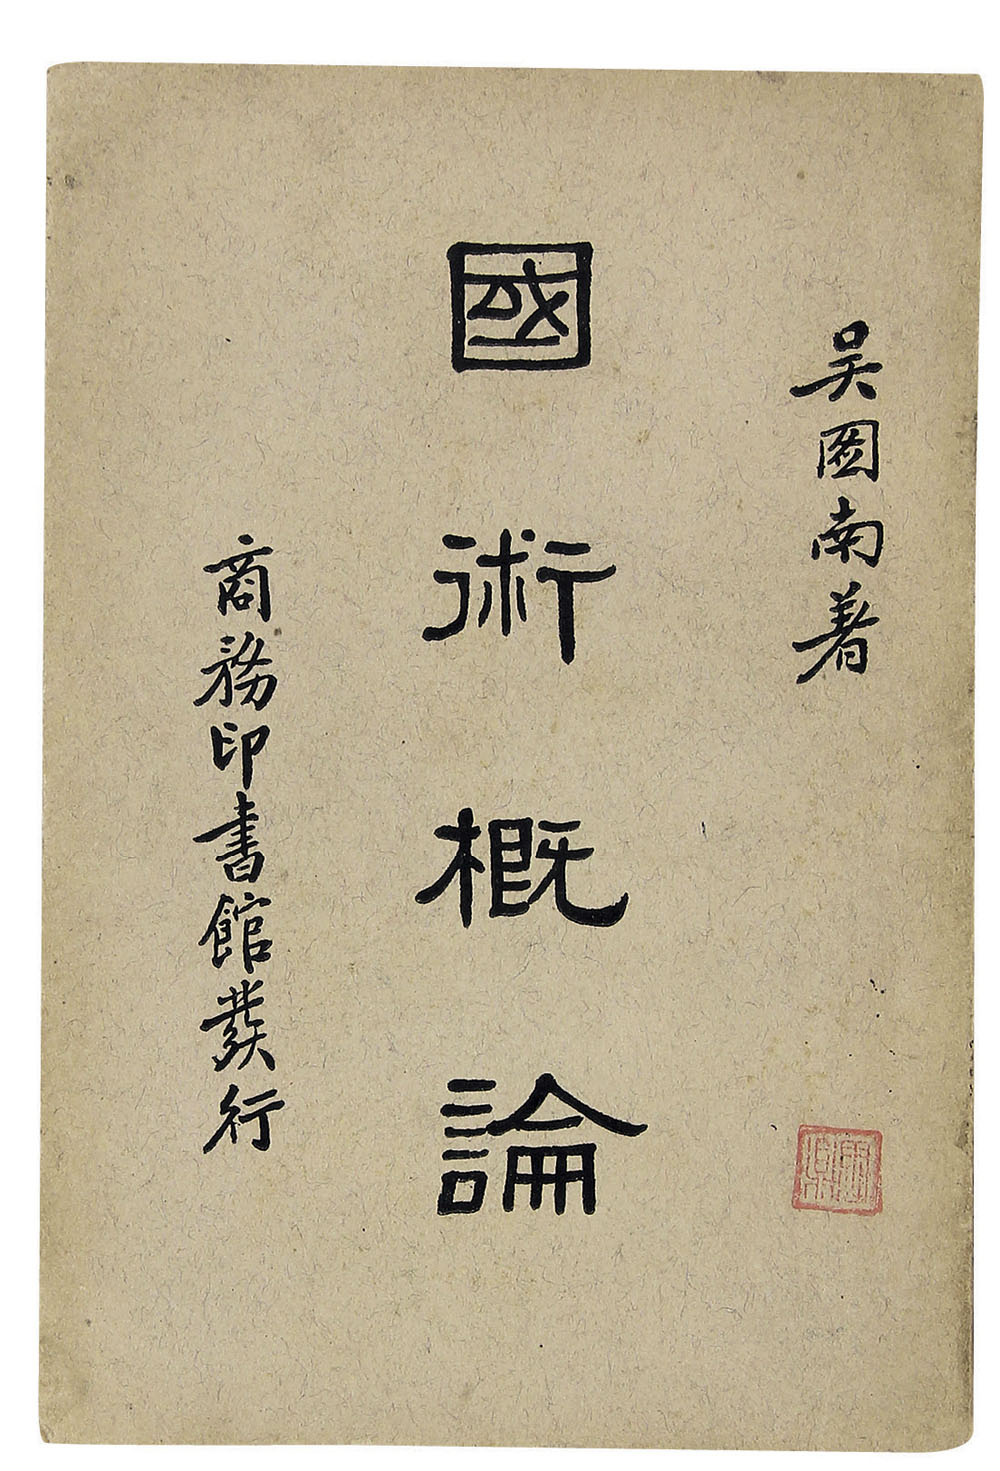 吴圖南著
國術概論
商務印書館發行